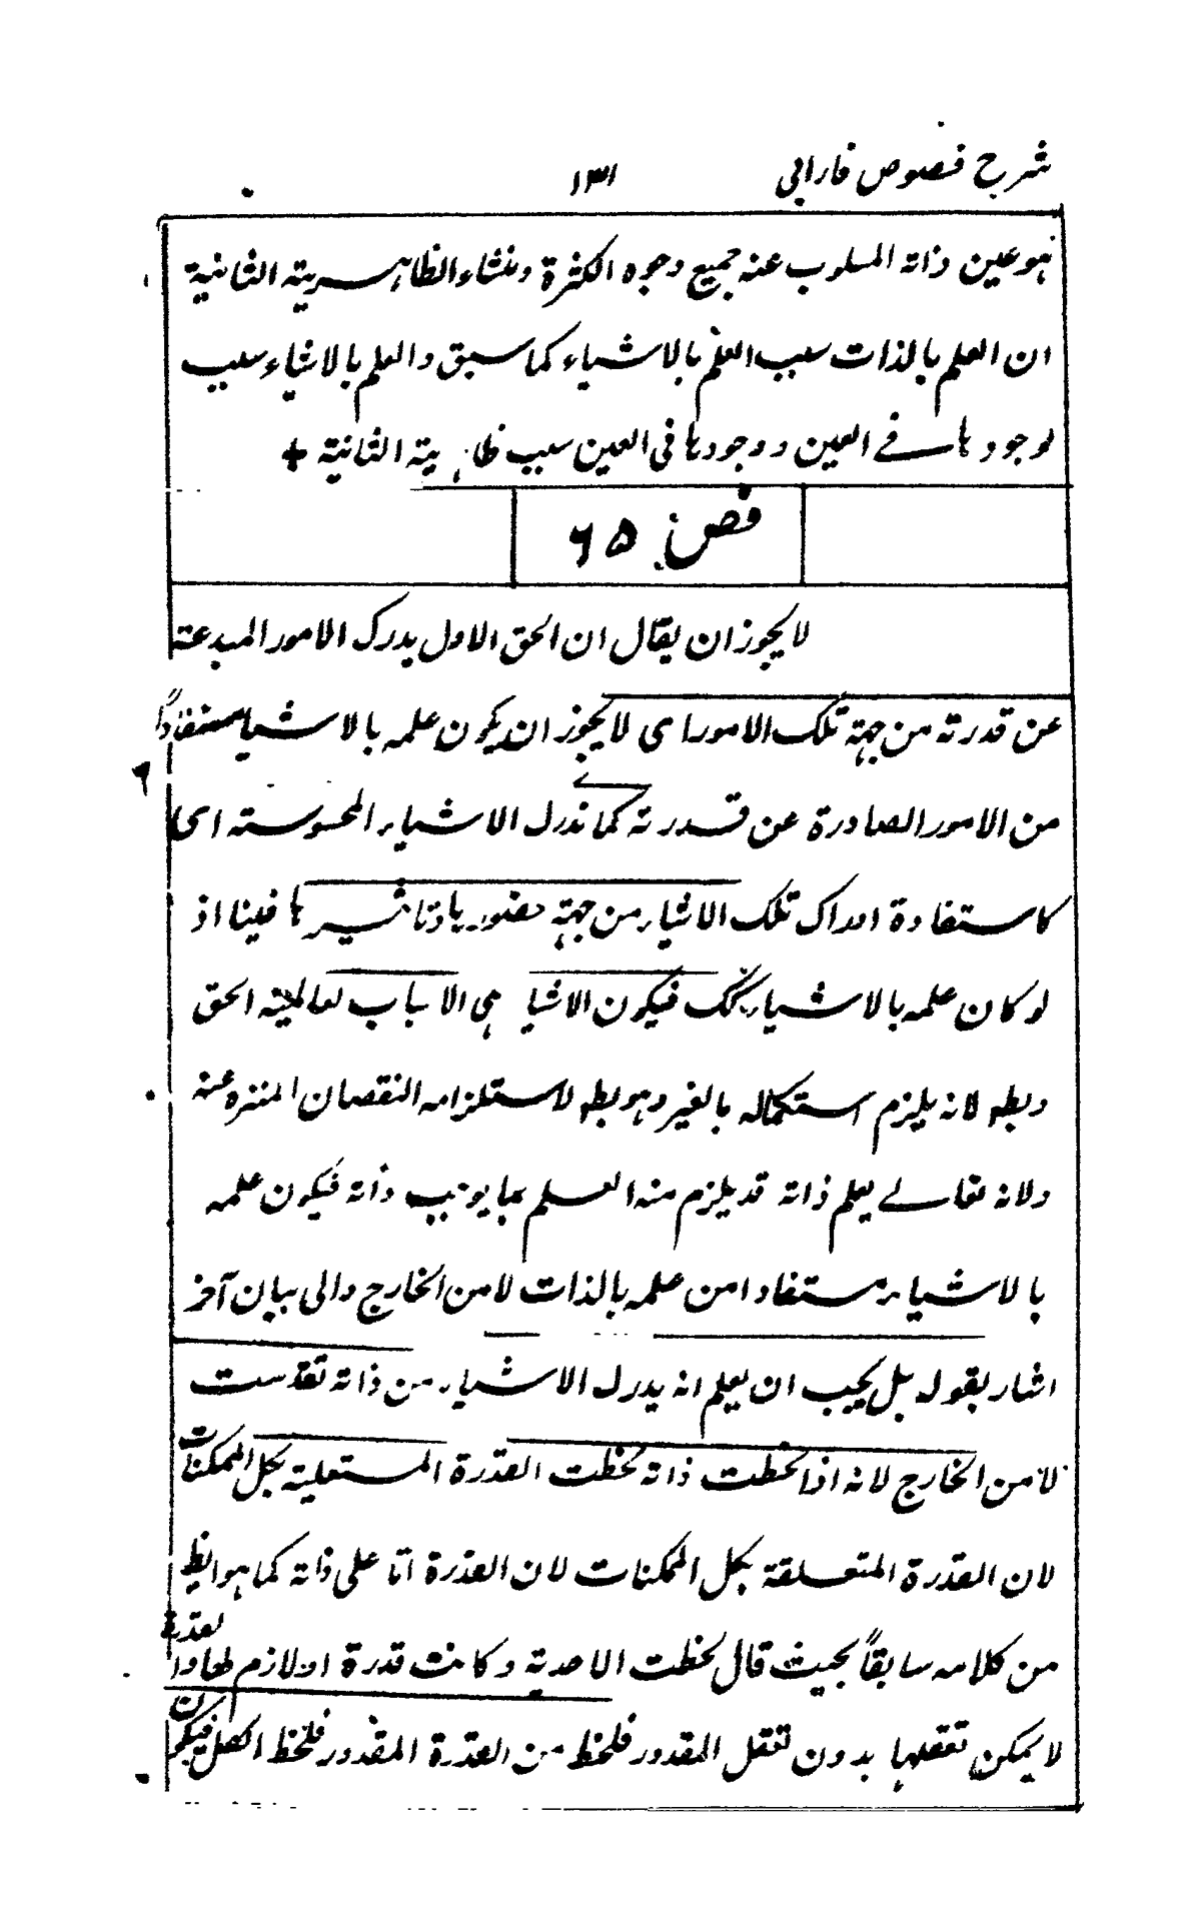 شرح فصوص فارابی ١٣١
فهو عين ذاته المسلوب عنه جميع وجوه الكثرة ومنشاء الظاهرية الثانية
ان العلم بالذات سبب العلم بالاشياء كما سبق والعلم بالاشياء سبب
لوجودها فے العين ووجودها فی العين سبب ظاهرية الثانية +
فص ۶۵
لا يجوز ان يقال ان الحق الاول يدرک الامور المبدعة
عن قدرته من جهة تلک الامور ای لا يجوز ان يكون علمه بالاشياء مستفاداً
من الامور الصادرة عن قدرته كما ندرک الاشياء المحسوسة ای
كاستفادة ادراک تلک الاشياء من جهة حضورها وتاثيرها فينا اذ
لو كان علمه بالاشياء كک فيكون الاشيا هی الاسباب لعالمية الحق
وبطه لانه يلزم استكماله بالغير وهو بطه لاستلزامه النقصان المنزه عنه
ولانه تعالے يعلم ذاته قد يلزم منه العلم بما يوجب ذاته فيكون علمه
بالاشياء مستفادا من علمه بالذات لا من الخارج والی بيان آخر
اشار بقوله بل يجب ان يعلم انه يدرک الاشياء من ذاته تقدست
لا من الخارج لانه اذا لحظت ذاته لحظت القدرة المستعلية بكل الممكنات
لان القدرة المتعلقة بكل الممكنات لان القدرة اما علی ذاته كما هو الظ
من كلامه سابقاً بحيث قال لحظت الاحدية وكانت قدرة او لازم لها والقدرة
لا يمكن تعقلها بدون تعقل المقدور فلحظ من القدرة المقدور فلحظ الكل فيكون